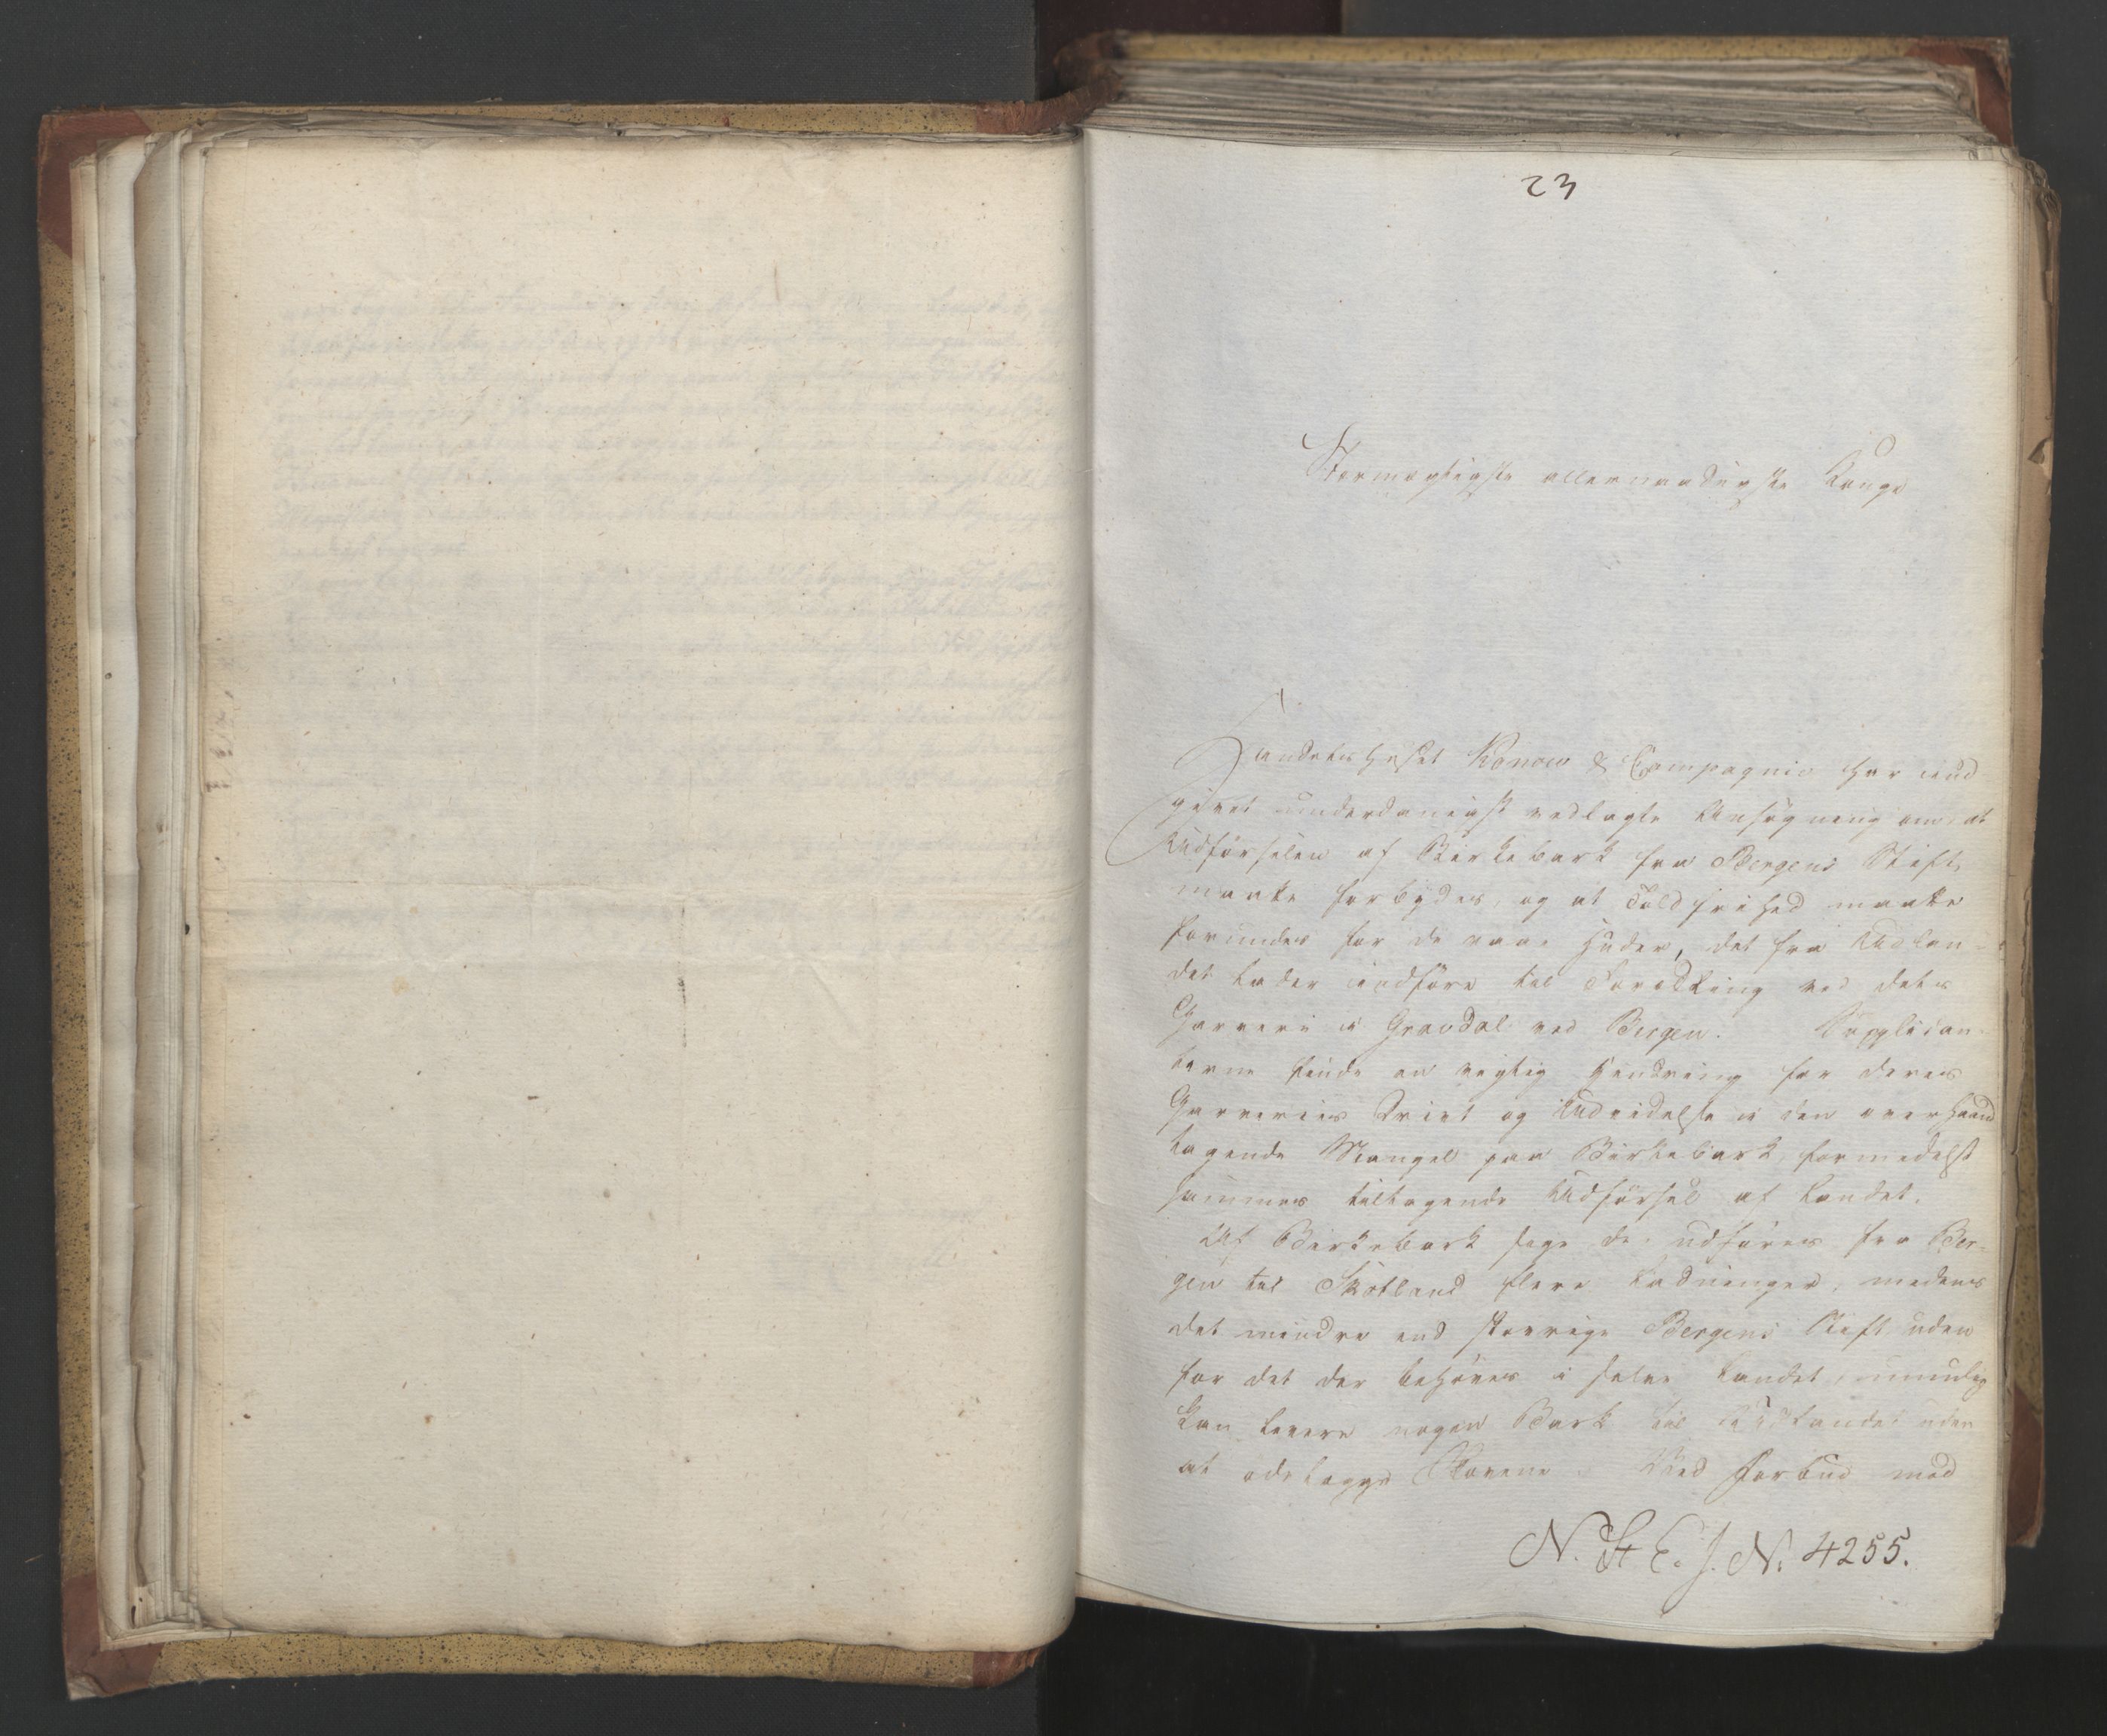 23
Stormægtigste allernaadigste Konge
Handelshuset Konow & Compagnie har ind
givet underdanigst vedlagte Ansøgning om, at
Udførselen af Birkebark fra Bergens Stift,
maatte forbydes, og at Toldfrihed maatte
forundes for de raae Huder, det fra Udlan-
det lader indføre til Foredling ved dets
Garveri i Gravdal ved Bergen. Supplican-
terne finde en vigtig Hindring for deres
Garveries Drivt og Udvidelse i den overhaand
tagende Mangel paa Birkebark, formedelst
sammes tiltagende Udførsel af Landet.
At Birkebark sige de udføres fra Ber-
gen til Skotland flere Ladninger, medens
det mindre end skovrige Bergens Stift uden
for det der behøves i selve Landet, umulig
kan levere nogen Bark til Udlandet uden
at ødelægge Skovene. Ved Forbud mod
N. St E. J. N. 4255.